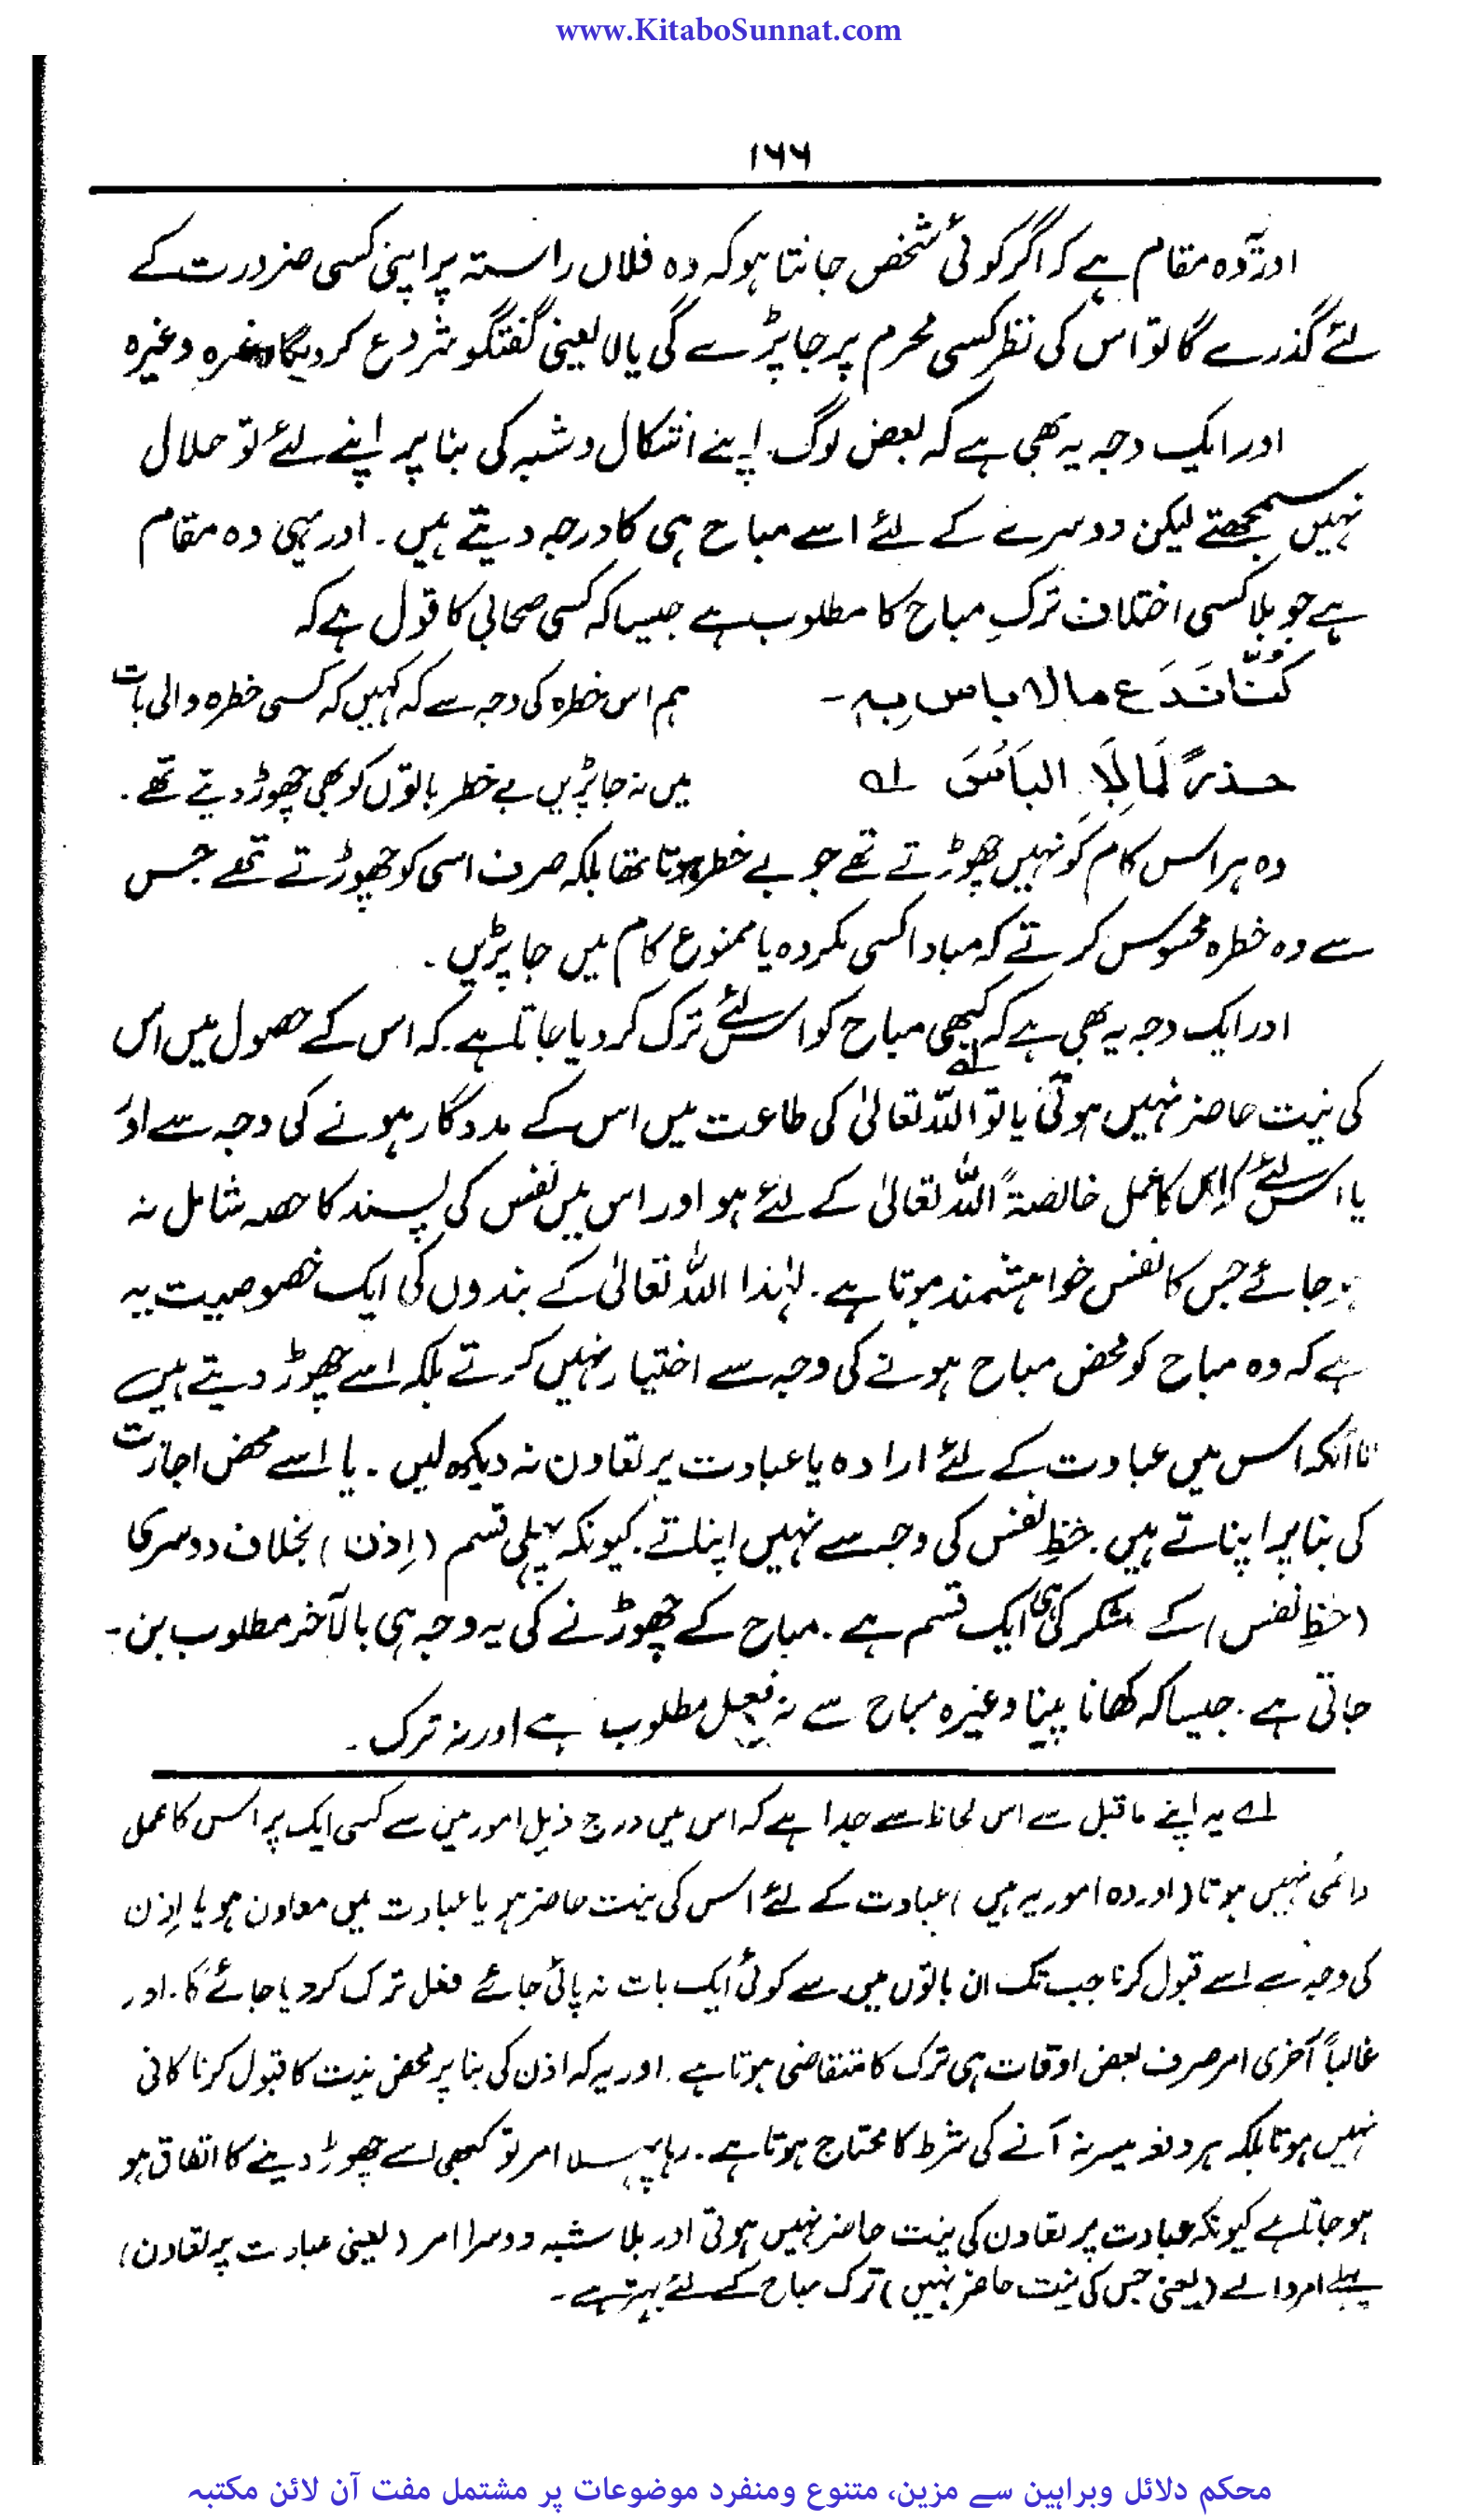 www.KitaboSunnat.com
۱۶۶
اور وہ مقام ہے کہ اگر کوئی شخص جانتا ہو کہ وہ فلاں راستہ پر اپنی کسی ضرورت کے
لئے گذرے گا تو اس کی نظر کسی محرم پر جا پڑے گی یا لا یعنی گفتگو شروع کر دیگا وغیرہ وغیرہ
اور ایک وجہ یہ بھی ہے کہ بعض لوگ اپنے اشکال و شبہ کی بنا پر اپنے لئے تو حلال
نہیں سمجھتے لیکن دوسرے کے لئے اسے مباح ہی کا درجہ دیتے ہیں۔ اور یہی وہ مقام
ہے جو بلا کسی اختلاف ترکِ مباح کا مطلوب ہے جیسا کہ کسی صحابی کا قول ہے کہ
كُنَّا نَدَعُ مالا باس بِہٖ۔ ہم اس خطرہ کی وجہ سے کہ کہیں کہ کسی خطرہ والی بات
حذرًا لِمَا بِہِ البَاسَ لہ میں نہ جا پڑیں بے خطر باتوں کو بھی چھوڑ دیتے تھے۔
وہ ہر اس کام کو نہیں چھوڑتے تھے جو بے خطر ہوتا تھا بلکہ صرف اسی کو چھوڑتے تھے جس
سے وہ خطرہ محسوس کرتے کہ مبادا کسی مکروہ یا ممنوع کام میں جا پڑیں۔
اور ایک وجہ یہ بھی ہے کہ کبھی مباح کو اس لئے ترک کر دیا جاتا ہے۔ کہ اس کے حصول میں اس
کی نیت حاضر نہیں ہوتی لہ یا تو اللہ تعالیٰ کی طاعت میں اس کے مددگار ہونے کی وجہ سے اور
یا اس لئے کہ اس کا عمل خالصۃً اللہ تعالیٰ کے لئے ہو اور اس میں نفس کی پسند کا حصہ شامل نہ
ہو جائے جس کا نفس خواہشمند ہوتا ہے۔ لہٰذا اللہ تعالیٰ کے بندوں کی ایک خصوصیت یہ
ہے کہ وہ مباح کو محض مباح ہونے کی وجہ سے اختیار نہیں کرتے بلکہ اسے چھوڑ دیتے ہیں
تا آنکہ اس میں عبادت کے لئے ارادہ یا عبادت پر تعاون نہ دیکھ لیں۔ یا اسے محض اجازت
کی بنا پر اپناتے ہیں۔ حظِ نفس کی وجہ سے نہیں اپناتے۔ کیونکہ پہلی قسم (اِذن) بخلاف دوسری
(حظِ نفس) کے شکر کی ہی ایک قسم ہے۔ مباح کے چھوڑنے کی یہ وجہ ہی بالآخر مطلوب بن۔
جاتی ہے۔ جیسا کہ کھانا پینا وغیرہ مباح سے نہ فعل مطلوب ہے اور نہ ترک۔
لہ یہ اپنے ماقبل سے اس لحاظ سے جدا ہے کہ اس میں درج ذیل امور میں سے کسی ایک پر اس کا عمل
دائمی نہیں ہوتا (اور وہ امور یہ ہیں) عبادت کے لئے اس کی نیت حاضر ہو یا عبادت میں معاون ہو یا اِذن
کی وجہ سے اسے قبول کرنا جب تک ان باتوں میں سے کوئی ایک بات نہ پائی جائے فعل ترک کر دیا جائے گا۔ اور
غالباً آخری امر صرف بعض اوقات ہی ترک کا متقاضی ہوتا ہے۔ اور یہ کہ اذن کی بنا پر محض نیت کا قبول کرنا کافی
نہیں ہوتا بلکہ ہر دفعہ میسر نہ آنے کی شرط کا محتاج ہوتا ہے۔ رہا پہلا امر تو کبھی اسے چھوڑ دینے کا اتفاق ہو
ہو جاتا ہے کیونکہ عبادت پر تعاون کی نیت حاضر نہیں ہوتی اور بلا شبہ دوسرا امر (یعنی عبادت پر تعاون)
پہلے امر والے (یعنی جس کی نیت حاضر نہیں) ترک مباح کے لئے بہتر ہے۔
محکم دلائل وبراہین سے مزین، متنوع ومنفرد موضوعات پر مشتمل مفت آن لائن مکتبہ